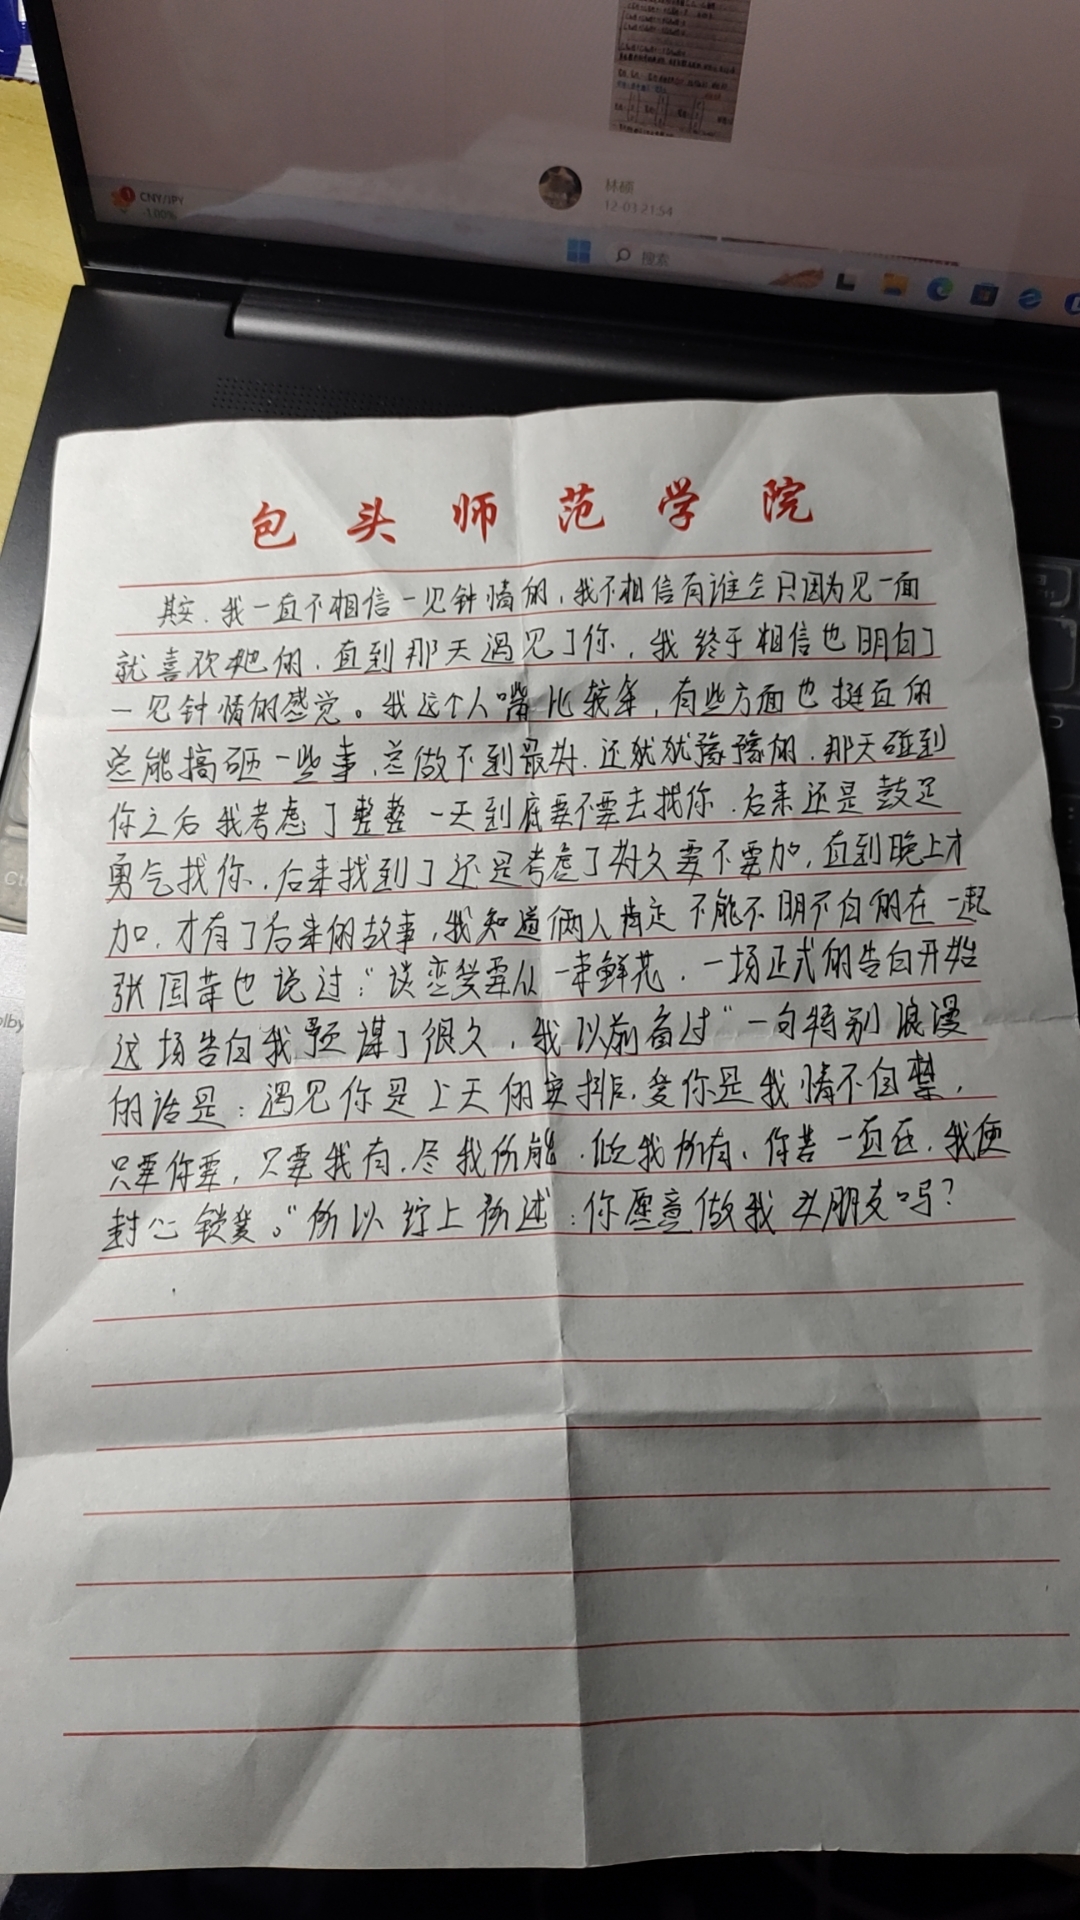 CNY/JPY
-1.00%
林硕
12-03 21:54
搜索
包头师范学院
其实,我一直不相信一见钟情的,我不相信有谁会只因为见一面
就喜欢她的,直到那天遇见了你,我终于相信也明白了
一见钟情的感觉。我这个人嘴比较笨,有些方面也挺直的
总能搞砸一些事,总做不到最好,还犹犹豫豫的,那天碰到
你之后我考虑了整整一天到底要不要去找你,后来还是鼓足
勇气找你,后来找到了还是考虑了好久要不要加,直到晚上才
加,才有了后来的故事,我知道俩人肯定不能不明不白的在一起
张国荣也说过:"谈恋爱要从一束鲜花,一场正式的告白开始
这场告白我预谋了很久,我以前看过"一句特别浪漫
的话是:遇见你是上天的安排,爱你是我情不自禁,
只要你要,只要我有,尽我所能,倾我所有,你若一直在,我便
封心锁爱。"所以综上所述:你愿意做我女朋友吗?